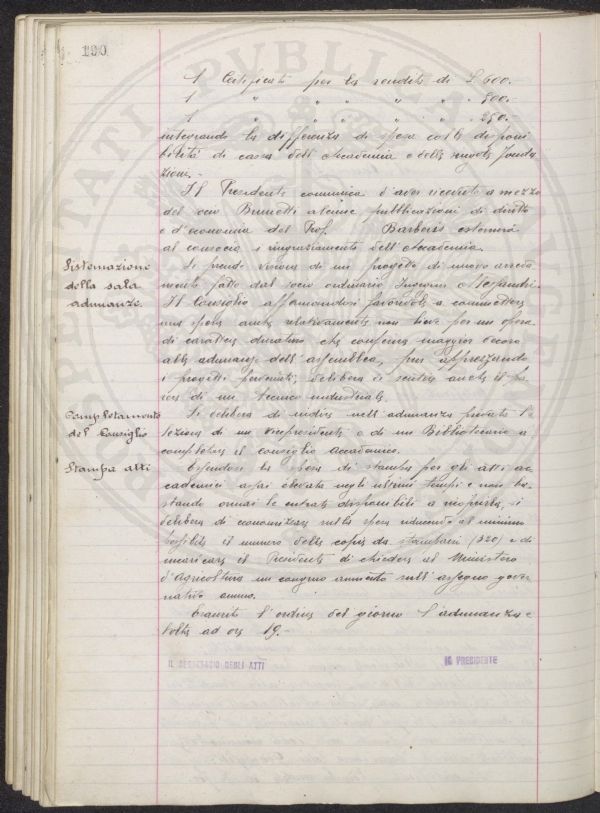 190
1 Certificato per la rendita di £ 600.
1 " " " " " " 500.-
1 " " " " " " 250.-
integrando la differenza di spesa colla disponi
bilità di cassa dell'Accademia e della nuova Fonda
zione.-
Il Presidente comunica d'aver ricevuto a mezzo
del socio Brunetti alcune pubblicazioni di diritto
e d'economia del Prof. Barberis esternerà
al consocio i ringraziamenti dell'Accademia.
Sistemazione
della sala
adunanze.
Si prende visione di un progetto di nuovo arreda
mento fatto dal socio ordinario Alessandri.
Il Consiglio affermandosi favorevole a commettere
una spesa anche relativamente non lieve per un'opera
di carattere duraturo che conferisca maggior decoro
alle adunanze dell'assemblea, pur apprezzando
i progetti delibera di sentire anche il pa
rere di un tecnico industriale.
Completamento
del Consiglio
Si delibera di indire nell'adunanza privata l'e
lezione di un vicepresidente e di un Bibliotecario a
completare il consiglio accademico.
Stampa atti
Essendosi la spesa di stampa per gli atti ac
cademici assai elevata negli ultimi tempi e non ba
stando ormai le entrate disponibili a si
delibera di economizzare sulla spesa riducendo al minimo
possibile il numero delle copie da stamparsi (320) e di
incaricare il Presidente di chiedere al Ministero
d'Agricoltura un congruo aumento sull'assegno gover
nativo annuo.
Esaurito l'ordine del giorno l'adunanza è
tolta ad ore 19.-
IL SEGRETARIO DEGLI ATTI
IL PRESIDENTE